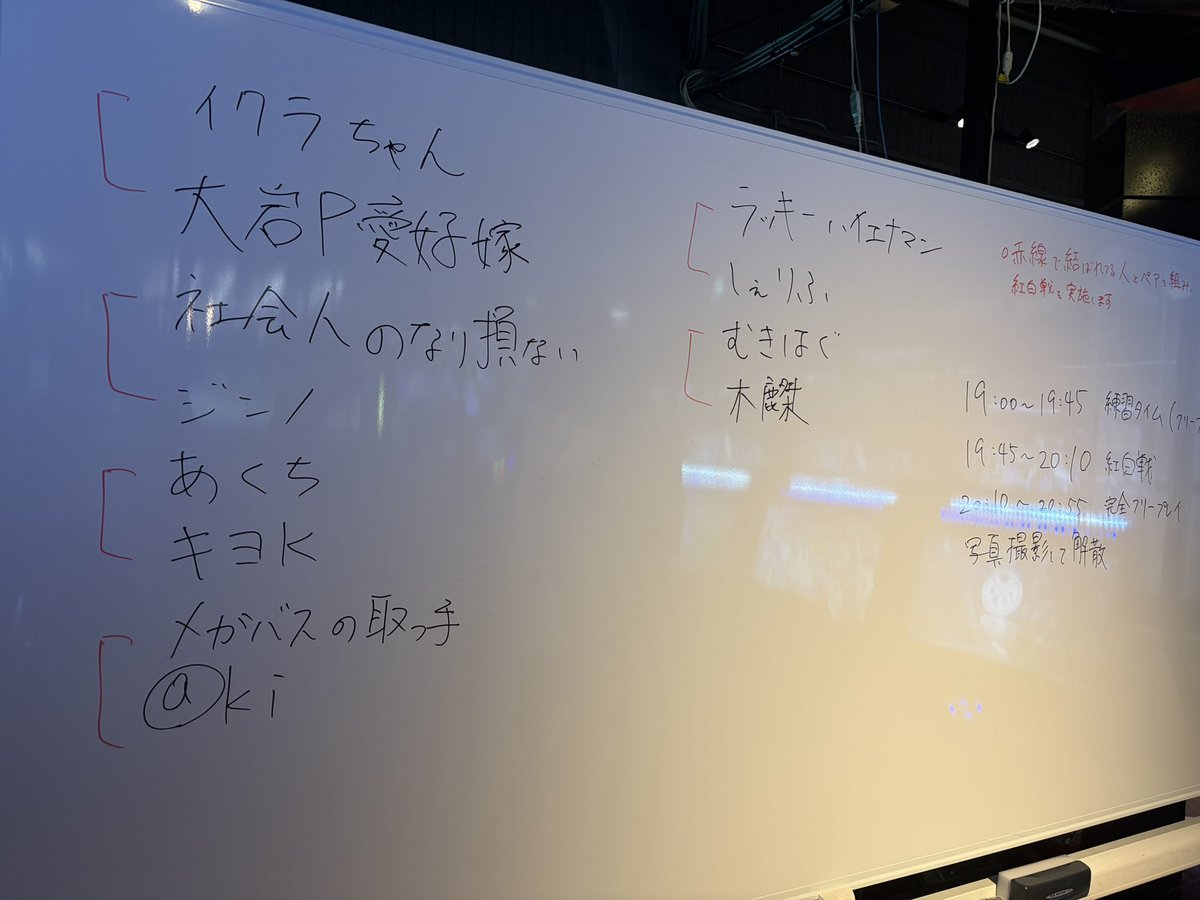 イクラちゃん
大岩P愛好嫁
社会人のなり損ない
ジンノ
あくち
キヨK
メガバスの取っ手
@ki
ラッキーハイエナマン
しぇりふ
むきはぐ
木麇桀
○赤線で結ばれてる人とペアを組み、
紅白戦を実施します
19:00~19:45 練習タイム(フリープ
19:45~20:10 紅白戦
20:10~20:55 完全フリープレイ
写真撮影して解散